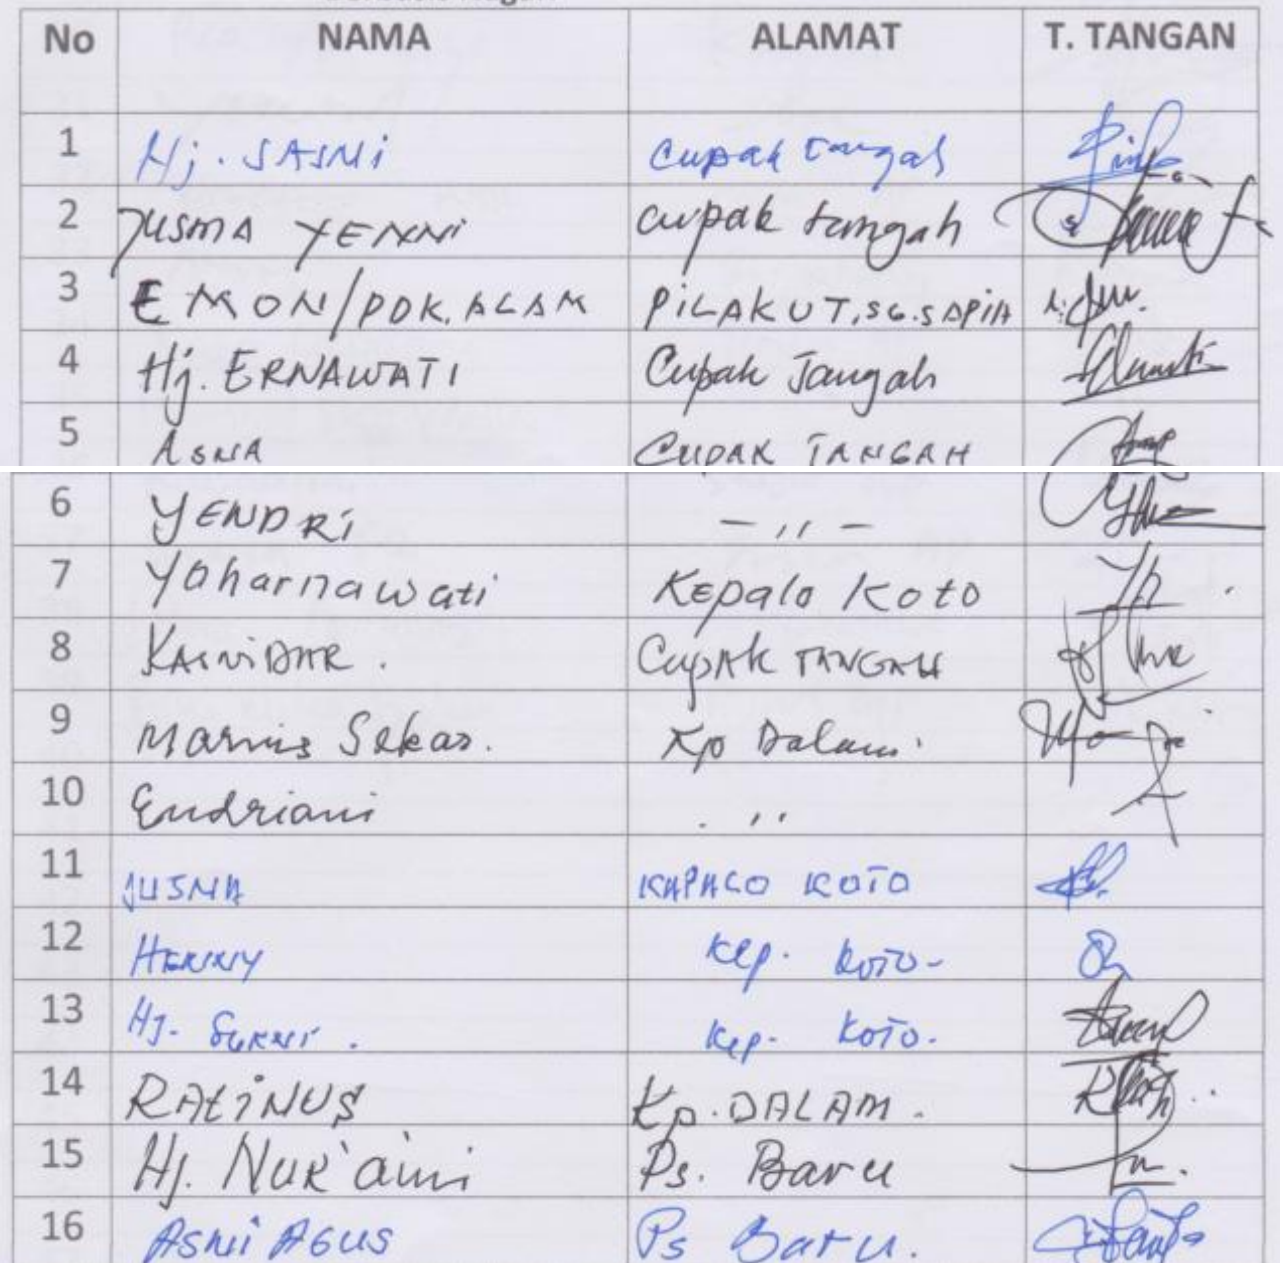 No NAMA ALAMAT T. TANGAN
1 Hj. SASMi Cupak tangah
2 JUSMA YENNi Cupak tangah
3 EMON/PDK. ALAM PiLAKUT, SG. SAPIH
4 Hj. ERNAWATI Cupak Tangah
5 ASNA CUPAK TANGAH
6 YENDRi - ,, -
7 Yoharnawati Kepalo Koto
8 KAINIDAR. Cupak TANGAH
9 Marnis Sekar. Kp Dalam.
10 Endriani . ,,
11 JUSMA KAPALO KOTO
12 HENNY Kep. Koto-
13 HJ. Kep. Koto.
14 RAtiNUS Kp. DALAM.
15 Hj. NUR'aini Ps. Baru
16 ASMi AGUS Ps Baru.